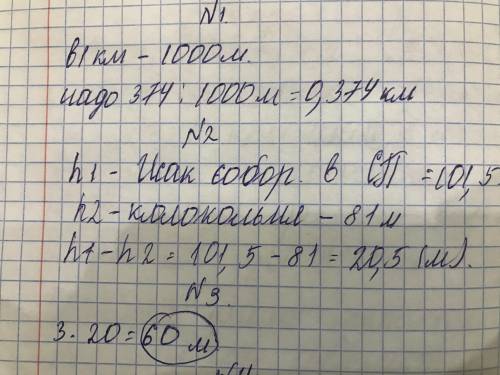 №1.
в1 км - 1000м.
надо 374 : 1000м = 0,374 км
№2
h1 - Исак собор. в СП = 101,5
h2 - колокольня - 81 м
h1 - h2 = 101,5 - 81 = 20,5 (м).
№3.
3 · 20 = 60 м